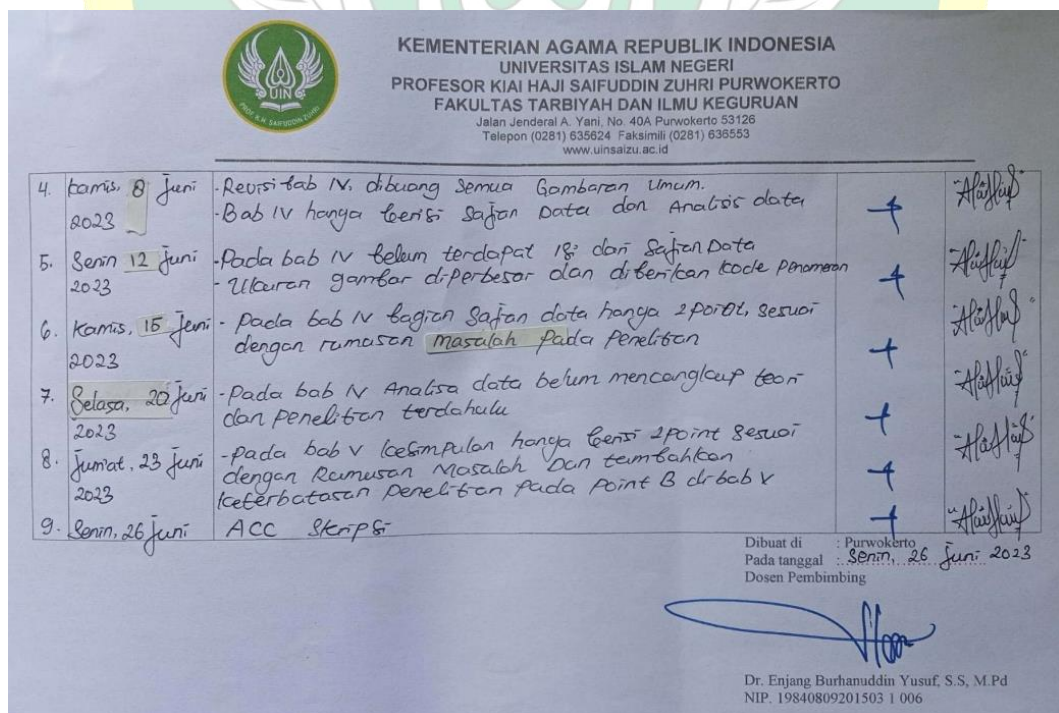 UIN
PROF. K.H. SAIFUDDIN ZUHRI
KEMENTERIAN AGAMA REPUBLIK INDONESIA
UNIVERSITAS ISLAM NEGERI
PROFESOR KIAI HAJI SAIFUDDIN ZUHRI PURWOKERTO
FAKULTAS TARBIYAH DAN ILMU KEGURUAN
Jalan Jenderal A. Yani, No. 40A Purwokerto 53126
Telepon (0281) 635624 Faksimili (0281) 636553
www.uinsaizu.ac.id
4. Kamis, 8 Juni 2023
- Revisi bab IV, dibuang semua Gambaran Umum.
- Bab IV hanya berisi Sajian Data dan Analisis data
5. Senin 12 Juni 2023
- Pada bab IV belum terdapat isi dari Sajian Data
- Ukuran gambar diperbesar dan diberikan kode penomeran
6. Kamis, 15 Juni 2023
- Pada bab IV bagian Sajian data hanya 2 point, sesuai
dengan rumusan masalah pada Penelitian
7. Selasa, 20 Juni 2023
- Pada bab IV Analisa data belum mencangkup teori
dan penelitian terdahulu
8. Jum'at, 23 Juni 2023
- pada bab V kesimpulan hanya berisi 2 point sesuai
dengan Rumusan Masalah Dan tambahkan
keterbatasan penelitian pada Point B di bab V
9. Senin, 26 Juni
ACC Skripsi
Dibuat di : Purwokerto
Pada tanggal : Senin, 26 Juni 2023
Dosen Pembimbing
Dr. Enjang Burhanuddin Yusuf, S.S, M.Pd
NIP. 19840809201503 1 006